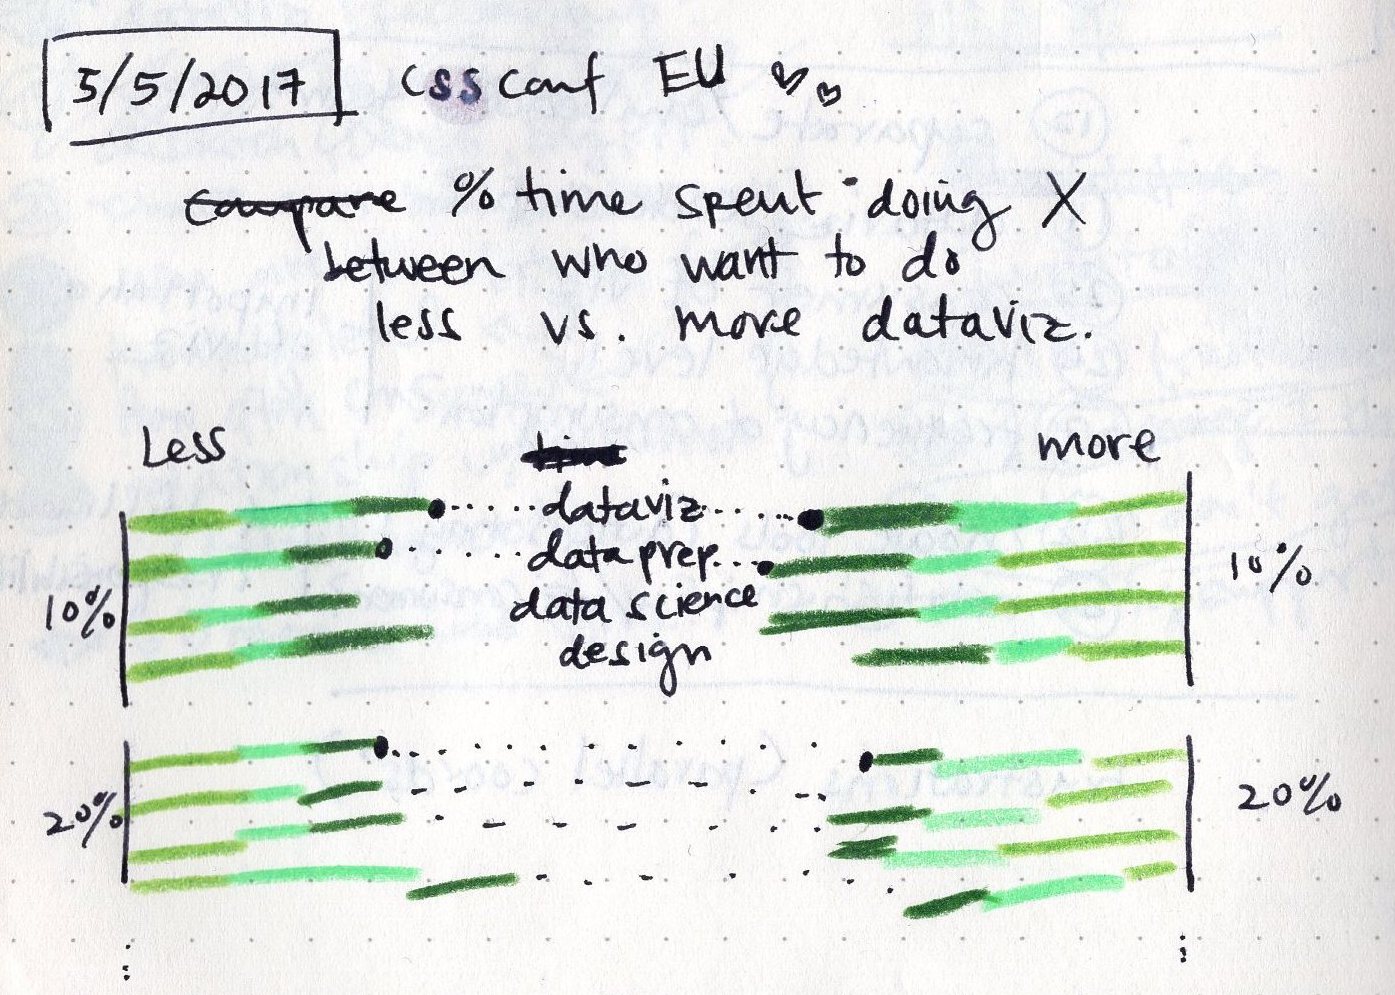 5/5/2017 CSS conf EU
Compare % time spent doing X
between who want to do
less vs. more dataviz.
Less time more
dataviz
data prep
10%
10%
data science
design
20%
20%